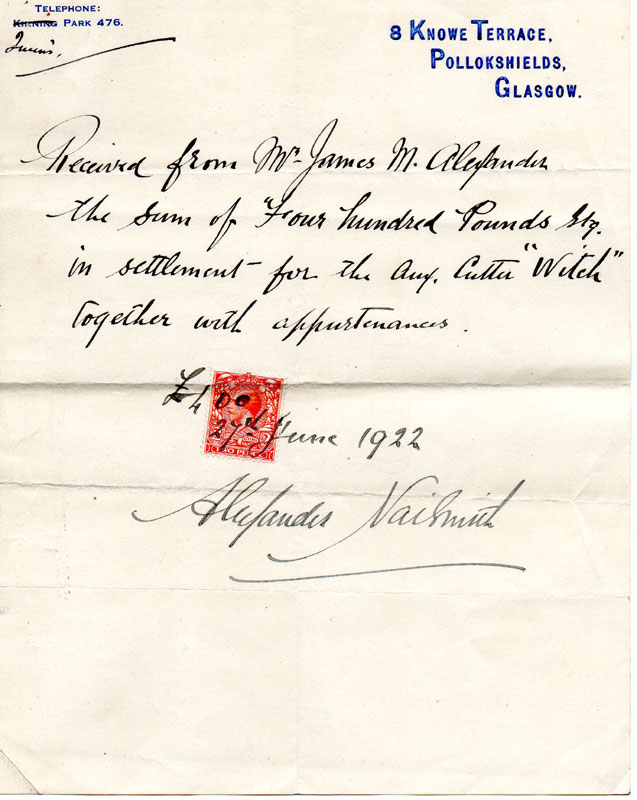 TELEPHONE:
KINNING PARK 476.
Queen's.
8 KNOWE TERRACE,
POLLOKSHIELDS,
GLASGOW.
Received from Mr. James M. Alexander
the sum of Four hundred Pounds Stg.
in settlement for the Aux. Cutter "Witch"
together with appurtenances.
£400
27th June 1922
TWO PENCE
Alexander NaiSmith